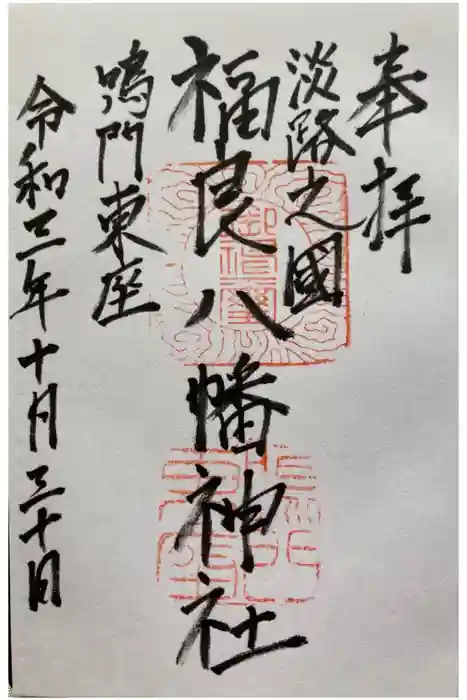 奉拝
淡路之國
福良八幡神社
鳴門東座
令和三年十月三十日